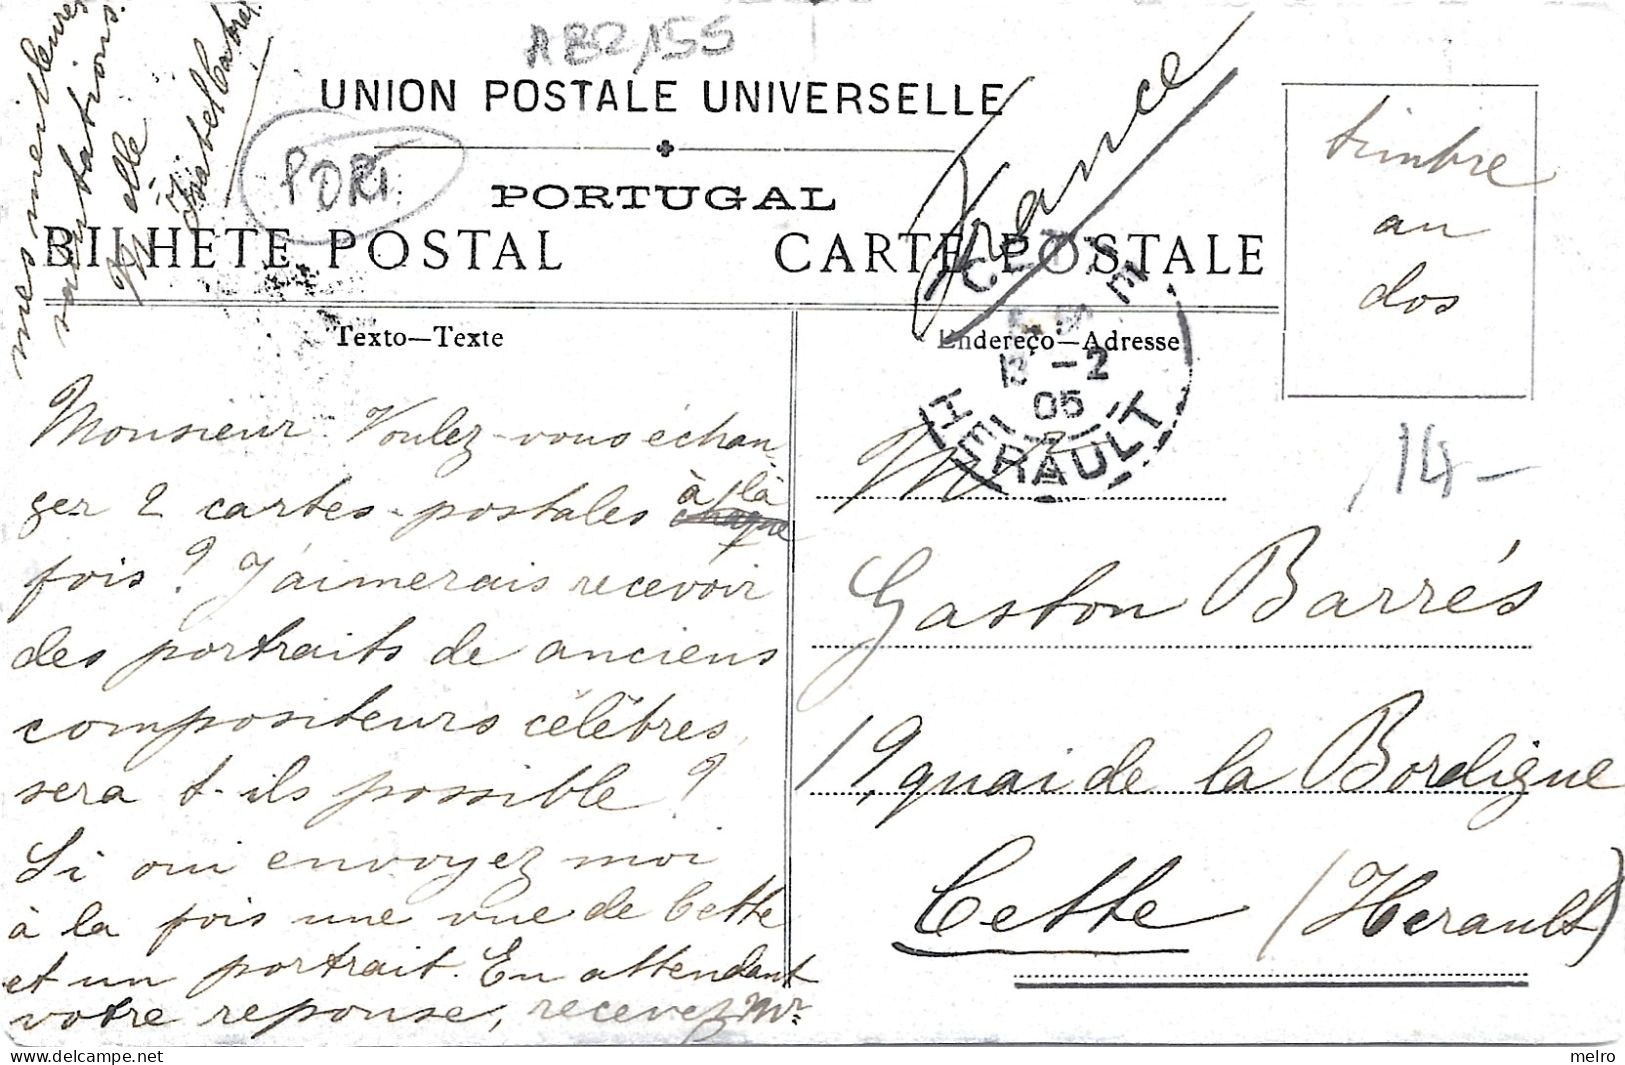 AB2,155
UNION POSTALE UNIVERSELLE
PORTUGAL
BILHETE POSTAL CARTE POSTALE
PORT
France
timbre
au
dos
Texto—Texte
Endereço—Adresse
CETTE
13 -2
05
HERAULT
14-
Monsieur. Voulez-vous échan-
ger 2 cartes-postales à la
fois? J'aimerais recevoir
des portraits de anciens
compositeurs célèbres,
sera t-ils possible?
Si oui envoyez moi
à la fois une vue de Cette
et un portrait. En attendant
votre reponse, recevez Mr
mes meilleures
salutations.
Melle
Isabel
Mr
Gaston Barrés
19, quai de la Bordigue
Cette (Herault)
melro
delcampe.net